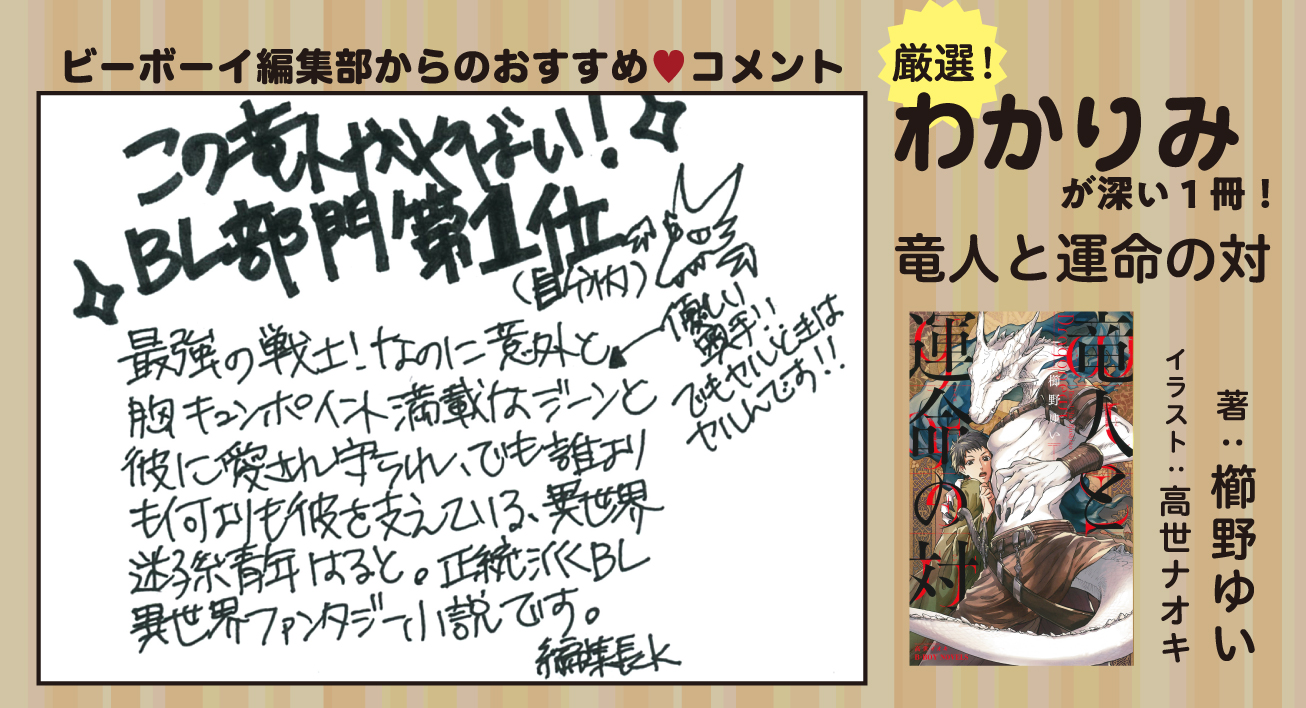 ビーボーイ編集部からのおすすめ♥コメント
この竜人がやばい!
BL部門第1位
(自分内)
最強の戦士!なのに意外と
胸キュンポイント満載なジーンと
彼に愛され守られ、でも誰より
も何よりも彼を支えている、異世界
迷子系青年はると。正統派BL
異世界ファンタジー小説です。
編集長K
優しい
頭手!!
でもヤルときは
ヤルんです!!
厳選!
わかりみ
が深い1冊!
竜人と運命の対
竜人と
運命の対
櫛野ゆい
イラスト:高世ナオキ
著:櫛野ゆい